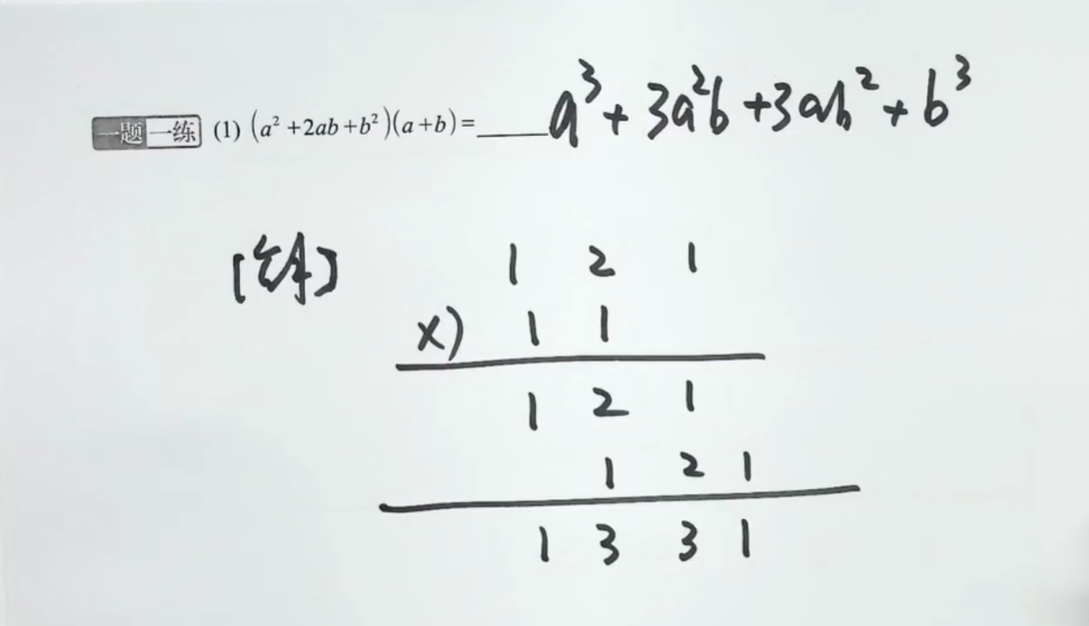 一题一练 (1) (a² +2ab+b²)(a+b)=_____ a³+3a²b+3ab²+b³
[解] 1 2 1
×) 1 1
1 2 1
1 2 1
1 3 3 1